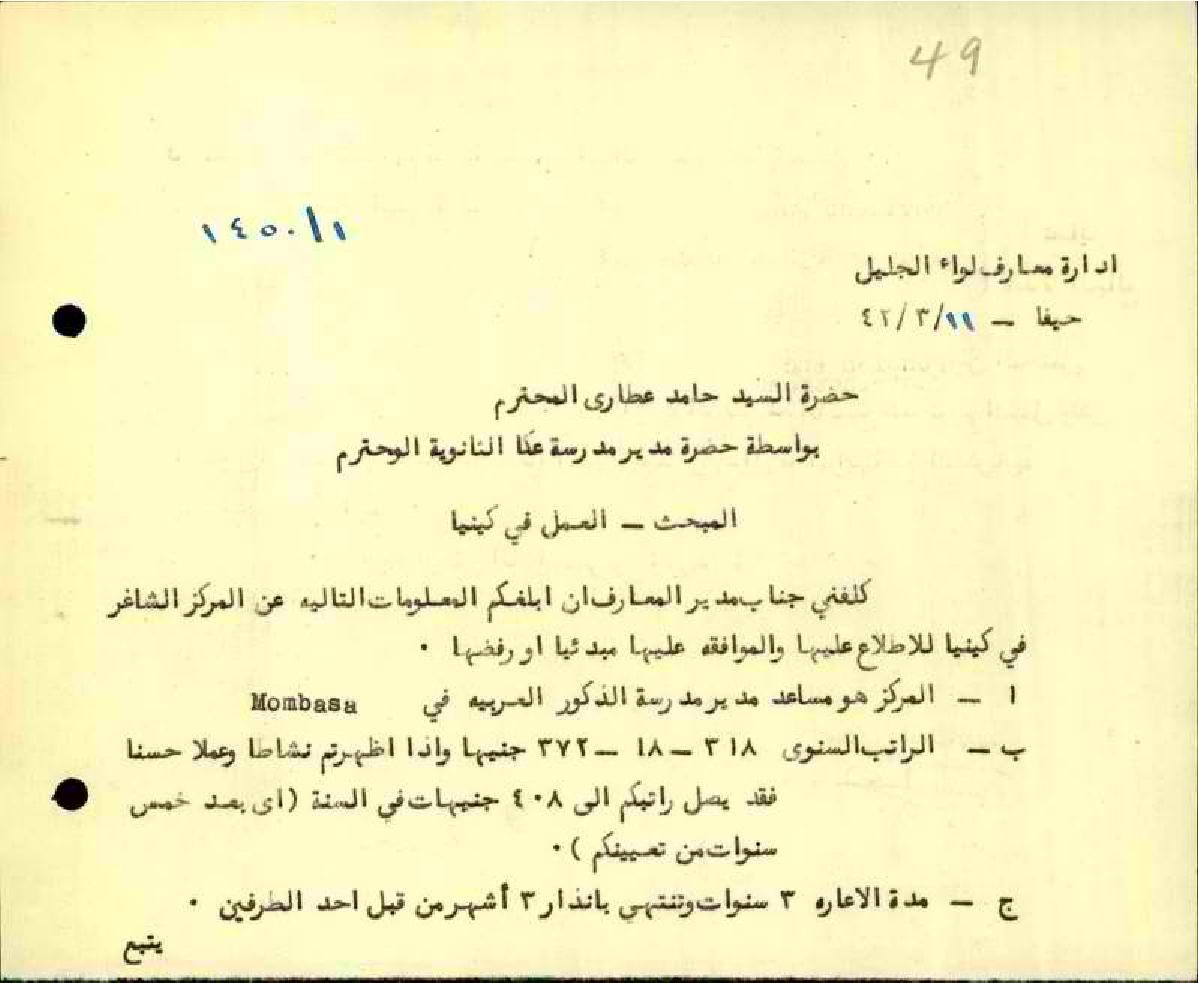 49
١٤٥٠/١
ادارة معارف لواء الجليل
حيفا — ١١/٣/٤٢
حضرة السيد حامد عطارى المحترم
بواسطة حضرة مدير مدرسة عكا الثانوية الوحترم
المبحث — العمل في كينيا
كلفني جناب مدير المعارف ان ابلغكم المعلومات التاليه عن المركز الشاغر
في كينيا للاطلاع عليها والموافقه عليها مبدئيا او رفضها ٠
ا — المركز هو مساعد مدير مدرسة الذكور العربيه في Mombasa
ب — الراتب السنوى ٣١٨ — ١٨ — ٣٧٢ جنيها واذا اظهرتم نشاطا وعملا حسنا
فقد يصل راتبكم الى ٤٠٨ جنيهات في السنة (اى بعد خمس
سنوات من تعيينكم) ٠
ج — مدة الاعاره ٣ سنوات وتنتهي بانذار ٣ أشهر من قبل احد الطرفين ٠
يتبع